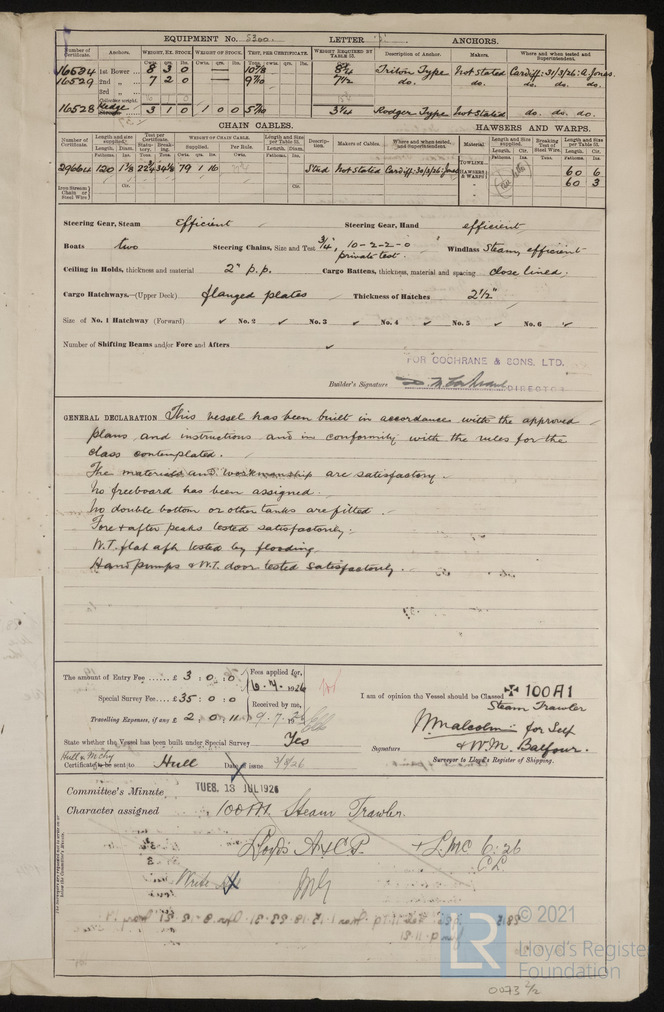 EQUIPMENT No. 5300. LETTER ANCHORS.
Number of Certificate. Anchors. WEIGHT, EX. STOCK. WEIGHT OF STOCK. TEST, PER CERTIFICATE. WEIGHT REQUIRED BY TABLE 53. Description of Anchor. Makers. Where and when tested and Superintendent.
Cwts. qrs. lbs. Cwts. qrs. lbs. Tons. cwts. qrs. lbs. Cwts.
16534 1st Bower 8 3 0 — 10 7/8 8 3/4 Triton Type Not Stated Cardiff: 31/3/26: A Jones.
16529 2nd „ 7 2 0 — 9 7/10 7 1/2 do. do. do. do. do.
3rd „
Collective weight.
16528 Kedge 3 1 0 1 0 0 5 7/10 3 1/4 Rodger Type Not Stated do. do. do.
CHAIN CABLES. HAWSERS AND WARPS.
Number of Certificate. Length and size supplied. Test per Certificate. WEIGHT OF CHAIN CABLE. Length and Size per Table 53. Description. Makers of Cables. Where and when tested, and Superintendent. Material Length and Size supplied. Breaking Test of Steel Wire. Length and Size per Table 53.
Fathoms. Diam. Statutory. Breaking. Supplied. Per Rule. Fathoms. Diam.
29664 120 1 1/8 79 1 16 Stud Not Stated Cardiff: 31/3/26: Jones
TOWLINE
HAWSERS & WARPS 60 6
60 3
Iron Stream Chain or Steel Wire
Steering Gear, Steam Efficient Steering Gear, Hand efficient
Boats two Steering Chains, Size and Test 3/4", 10-2-2-0 private test. Windlass Steam, efficient
Ceiling in Holds, thickness and material 2" p.p. Cargo Battens, thickness, material and spacing close lined.
Cargo Hatchways.—(Upper Deck) flanged plates Thickness of Hatches 2 1/2"
Size of No. 1 Hatchway (Forward) ✓ No. 2 ✓ No. 3 ✓ No. 4 ✓ No. 5 ✓ No. 6 ✓
Number of Shifting Beams and/or Fore and Afters ✓
FOR COCHRANE & SONS. LTD.
Builder's Signature DIRECTOR
GENERAL DECLARATION This vessel has been built in accordance with the approved
plans and instructions and in conformity with the rules for the
class contemplated.
The materials and workmanship are satisfactory.
No freeboard has been assigned.
No double bottom or other tanks are fitted.
Fore & after peaks tested satisfactorily.
W.T. flat aft tested by flooding.
Hand pumps & W.T. door tested satisfactorily.
The amount of Entry Fee £ 3 : 0 : 0 Fees applied for,
6.7.1926
Special Survey Fee £ 35 : 0 : 0 Received by me,
Travelling Expenses, if any £ 2 : 0 : 11 9.7.1926
I am of opinion the Vessel should be Classed ✠ 100A1
Steam Trawler
State whether the Vessel has been built under Special Survey Yes
Signature W Malcolm for Self
& W.M. Balfour.
Surveyor to Lloyd's Register of Shipping.
Hull & Mchy
Certificate to be sent to Hull Date of issue 3/8/26
Committee's Minute TUES. 13 JUL 1926
Character assigned 100A1. Steam Trawler.
Lloyd's A&CP. + LMC 6.26
C.L.
Write
© 2021
LR
Lloyd's Register
Foundation
0073 2/2